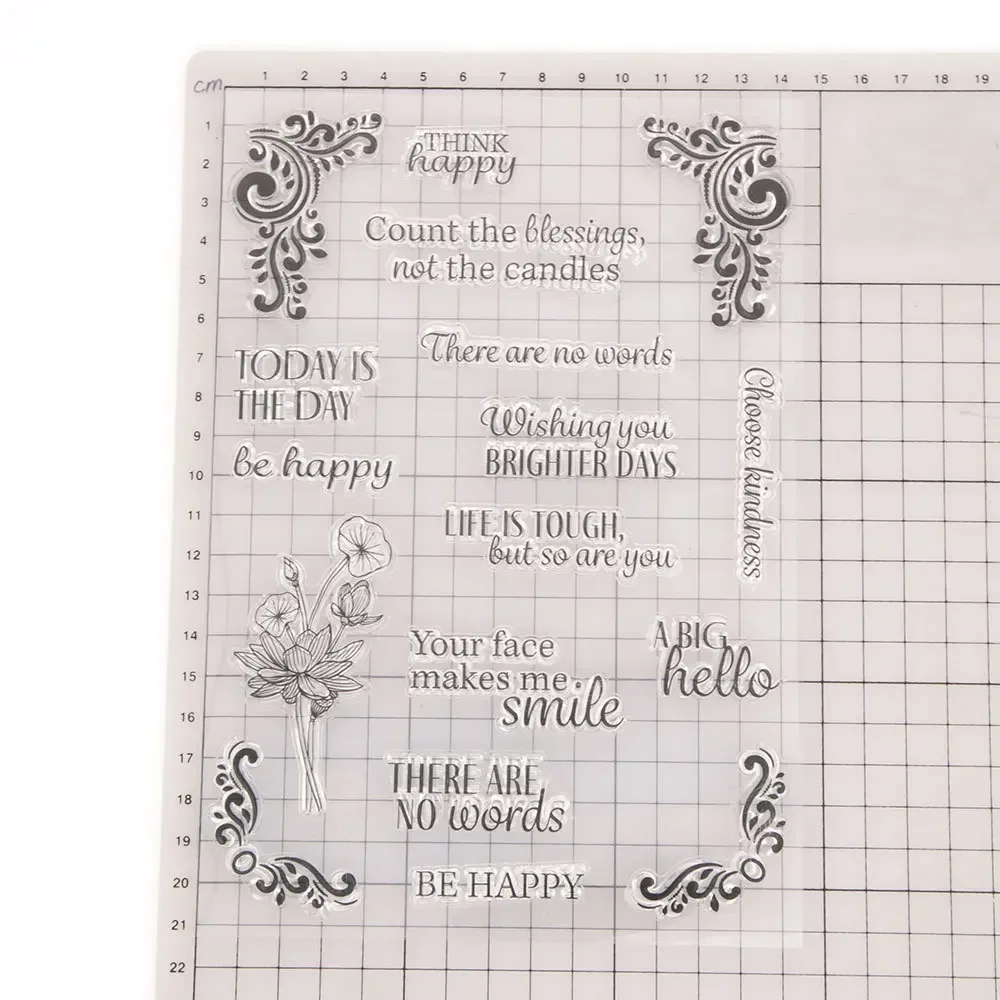 cm
1 2 3 4 5 6 7 8 9 10 11 12 13 14 15 16 17 18 19
1
2
3
4
5
6
7
8
9
10
11
12
13
14
15
16
17
18
19
20
21
22
THINK
happy
Count the blessings,
not the candles
There are no words
TODAY IS
THE DAY
be happy
Wishing you
BRIGHTER DAYS
Choose kindness
LIFE IS TOUGH,
but so are you
Your face
makes me
smile
A BIG
hello
THERE ARE
NO words
BE HAPPY